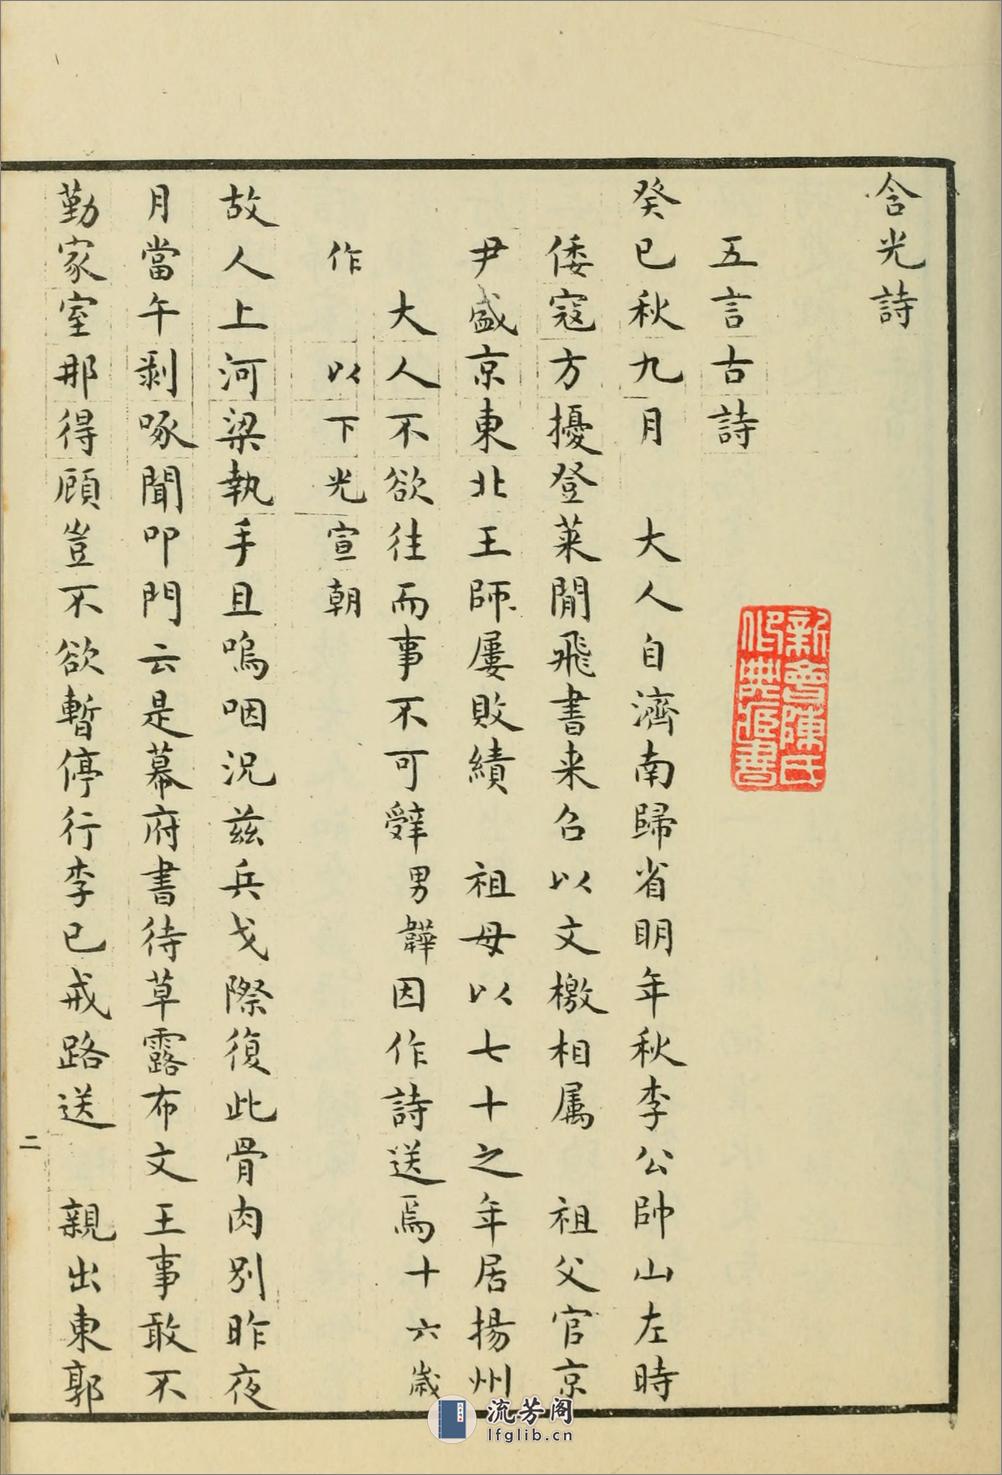 含光詩
五言古詩
癸巳秋九月　大人自濟南歸省明年秋李公帥山左時
倭寇方擾登萊閒飛書来召以文檄相属　祖父官京
尹盛京東北王師屢敗績　祖母以七十之年居揚州
大人不欲往而事不可辤男韡因作詩送焉十六歲
作　以下光宣朝
故人上河梁執手且嗚咽況兹兵戈際復此骨肉別昨夜
月當午剥啄聞叩門云是幕府書待草露布文王事敢不
勤家室那得顧豈不欲暫停行李已戒路送　親出東郭
二
新會陳氏
流芳阁
lfglib.cn